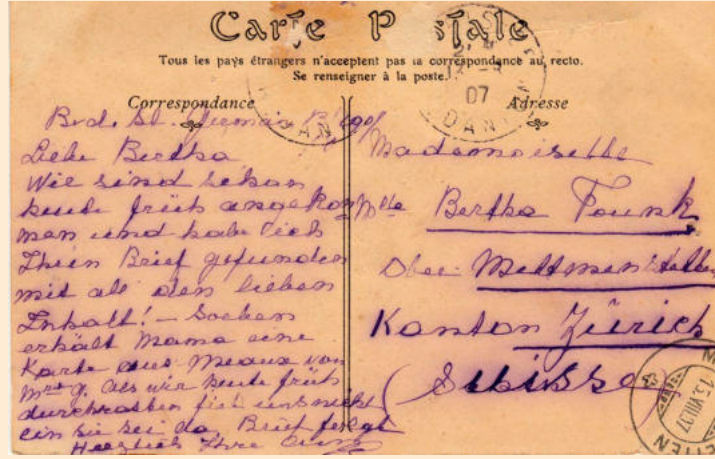 Carte Postale
Tous les pays étrangers n'acceptent pas la correspondance au recto.
Se renseigner à la poste.
Correspondance
Adresse
Bvd. St. Germain
Liebe Bertha
Wir sind schon
heute früh angekom
men und habe
Ihren Brief gefunden
mit all den lieben
Inhalt! – Soeben
erhält Mama eine
Karte aus Meaux von
als wir heute früh
ein sie sei da. Brief folgt
Herzlich Ihre
07
DAN
Mademoiselle
Mlle Bertha Funk
Ober-Mettmenstetten
Kanton Zürich
(Suisse)
15.VIII.07